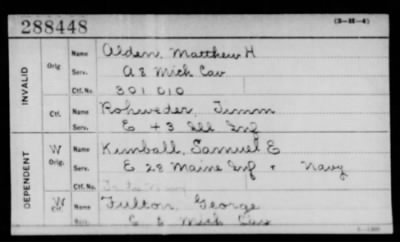 288448
(3-H-4)
INVALID
Orig
Name Alden, Matthew H
Serv. A 8 Mich Cav
Ctf. No. 301 010
Ctf.
Name Rohweder, Timm
Serv. E 43 Ill Inf
DEPENDENT
W Orig.
Name Kimball, Samuel E
Serv. E 28 Maine Inf + Navy
Ctf. No.
W Ctf.
Name Fulton, George
Serv. E 8 Mich Cav